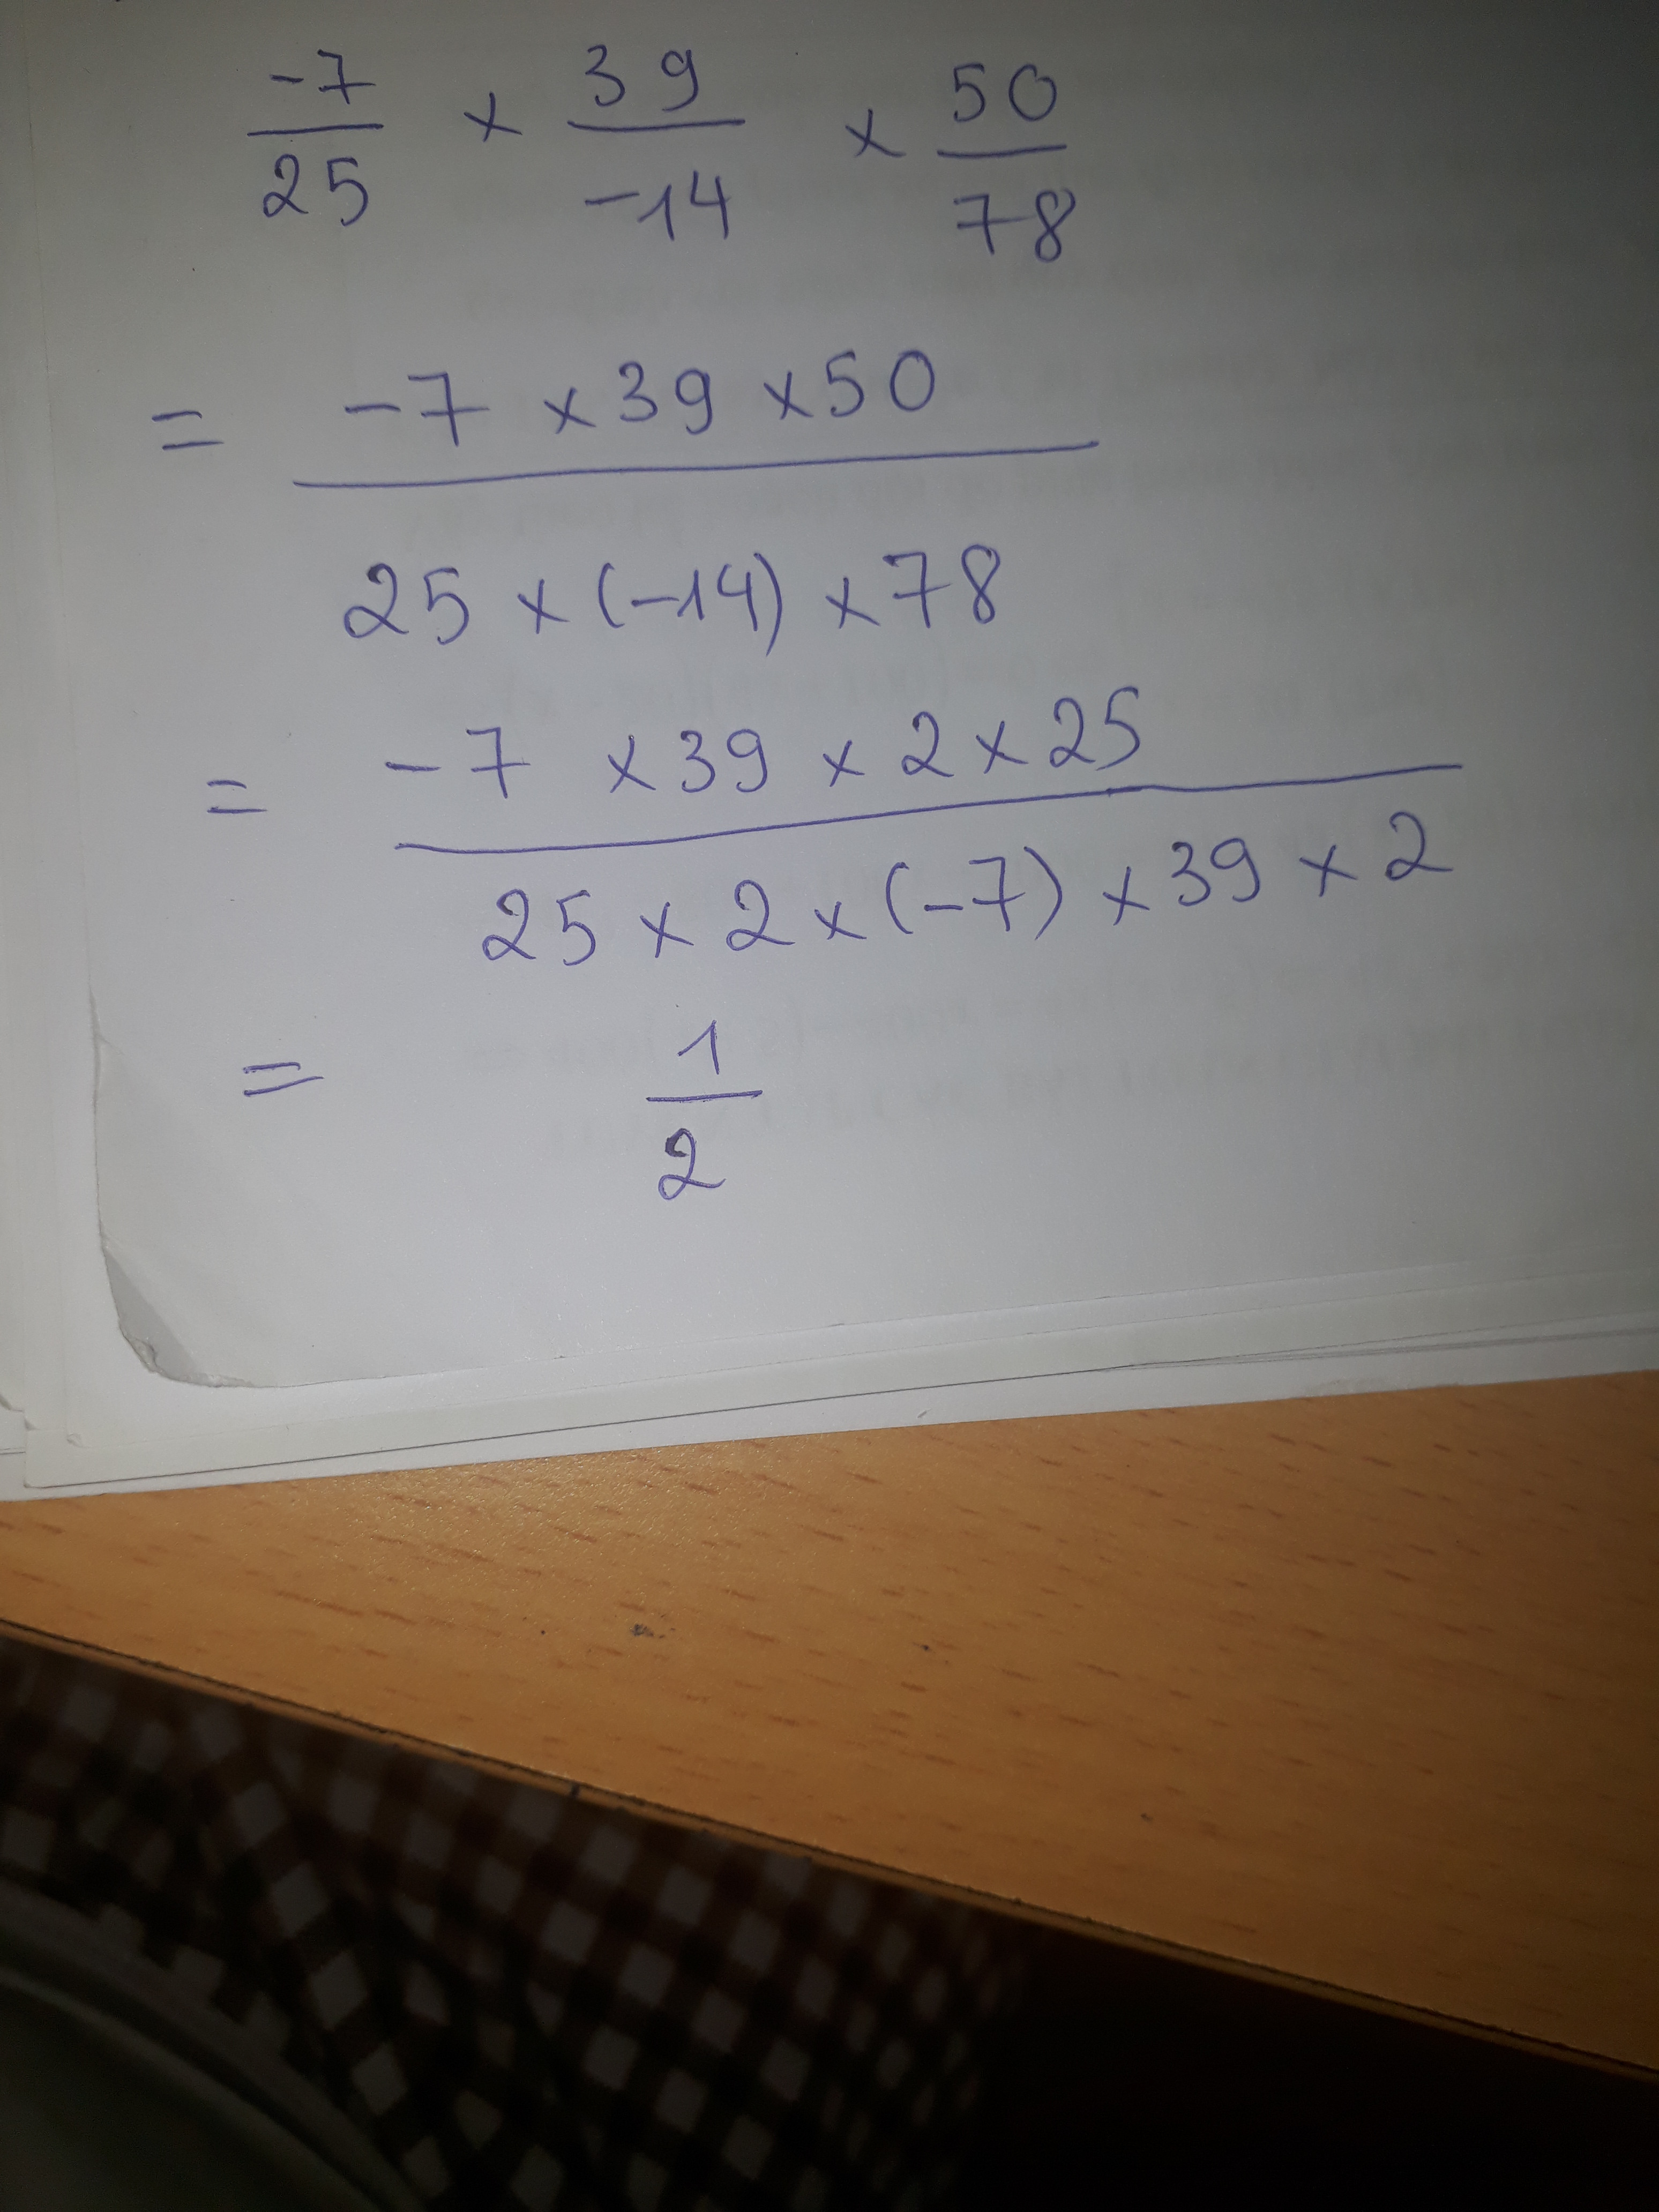 -7/25 × 39/-14 × 50/78
= -7 × 39 × 50 / 25 × (-14) × 78
= -7 × 39 × 2 × 25 / 25 × 2 × (-7) × 39 × 2
= 1/2